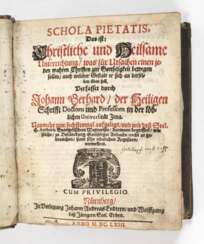 SCHOLA PIETATIS,
Das ist:
Christliche und Heilsame
Unterrichtung / was für Ursachen einen je-
den wahren Christen zur Gottseligkeit bewegen
sollen / auch welcher Gestalt er sich an dersel-
ben üben soll,
Verfasset durch
Johann Gerhard / der Heiligen
Schrifft Doctorn und Professorn in der löb-
lichen Universität Jena.
CUM PRIVILEGIO.
Nürnberg /
In Verlegung Johann Andreas Endters / und Wolffgang
deß Jüngern Seel. Erben.
ANNO M DC LXIII.